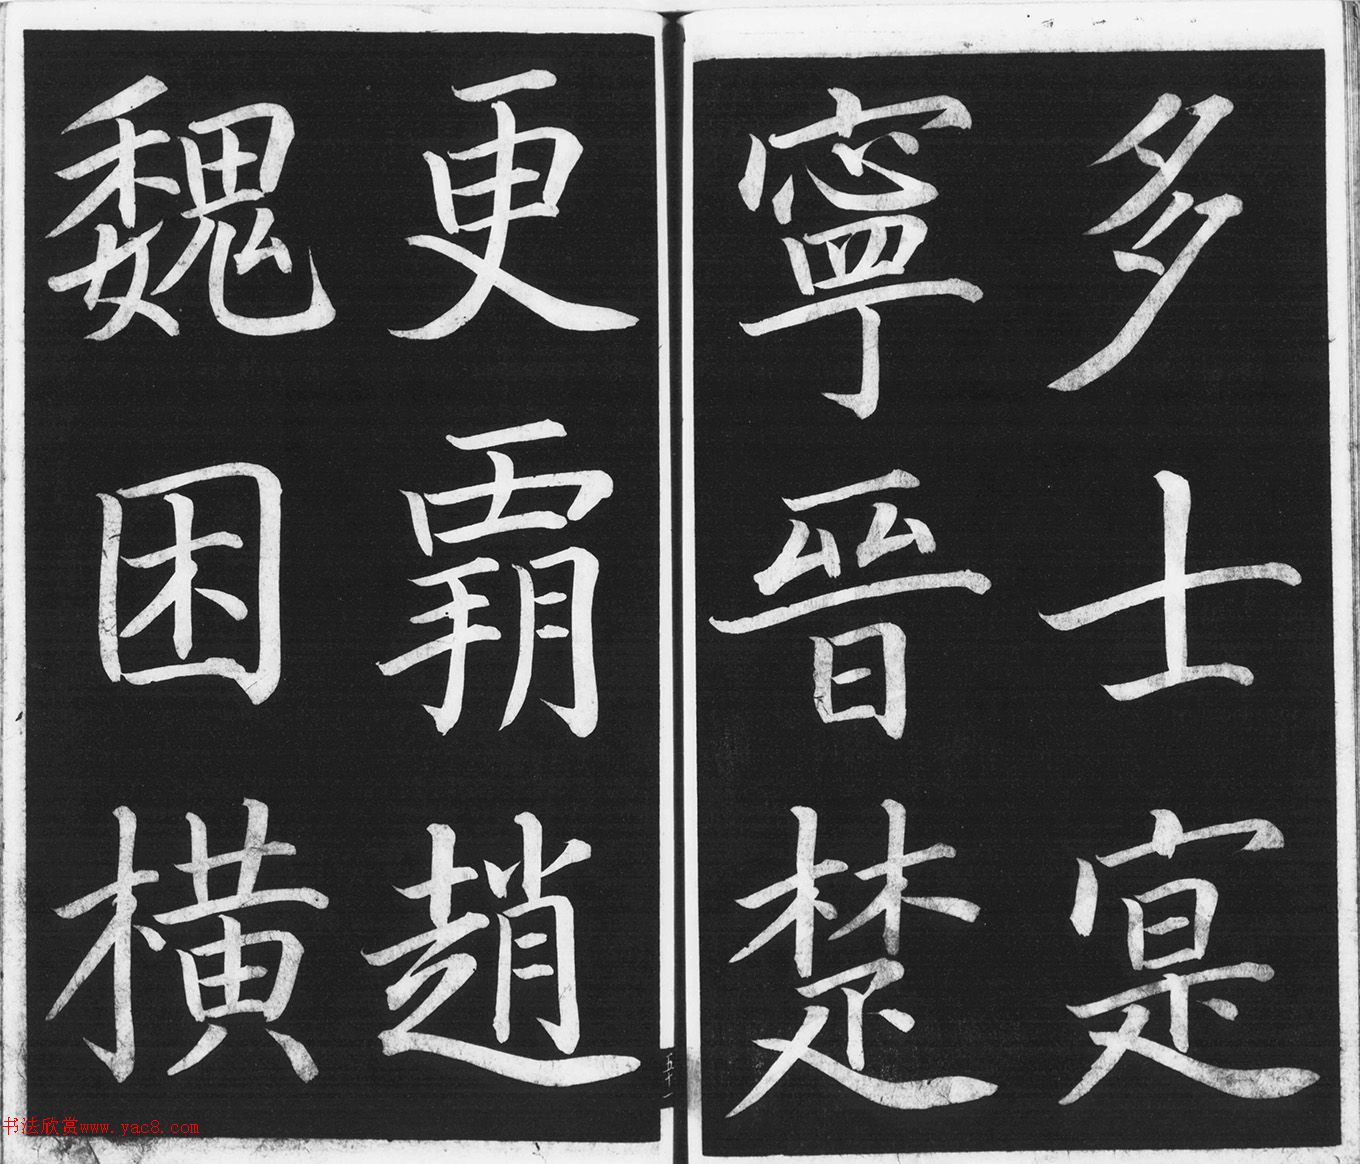 多士寔
寧晉楚
更霸趙
魏困橫
五十一
书法欣赏www.yac8.com